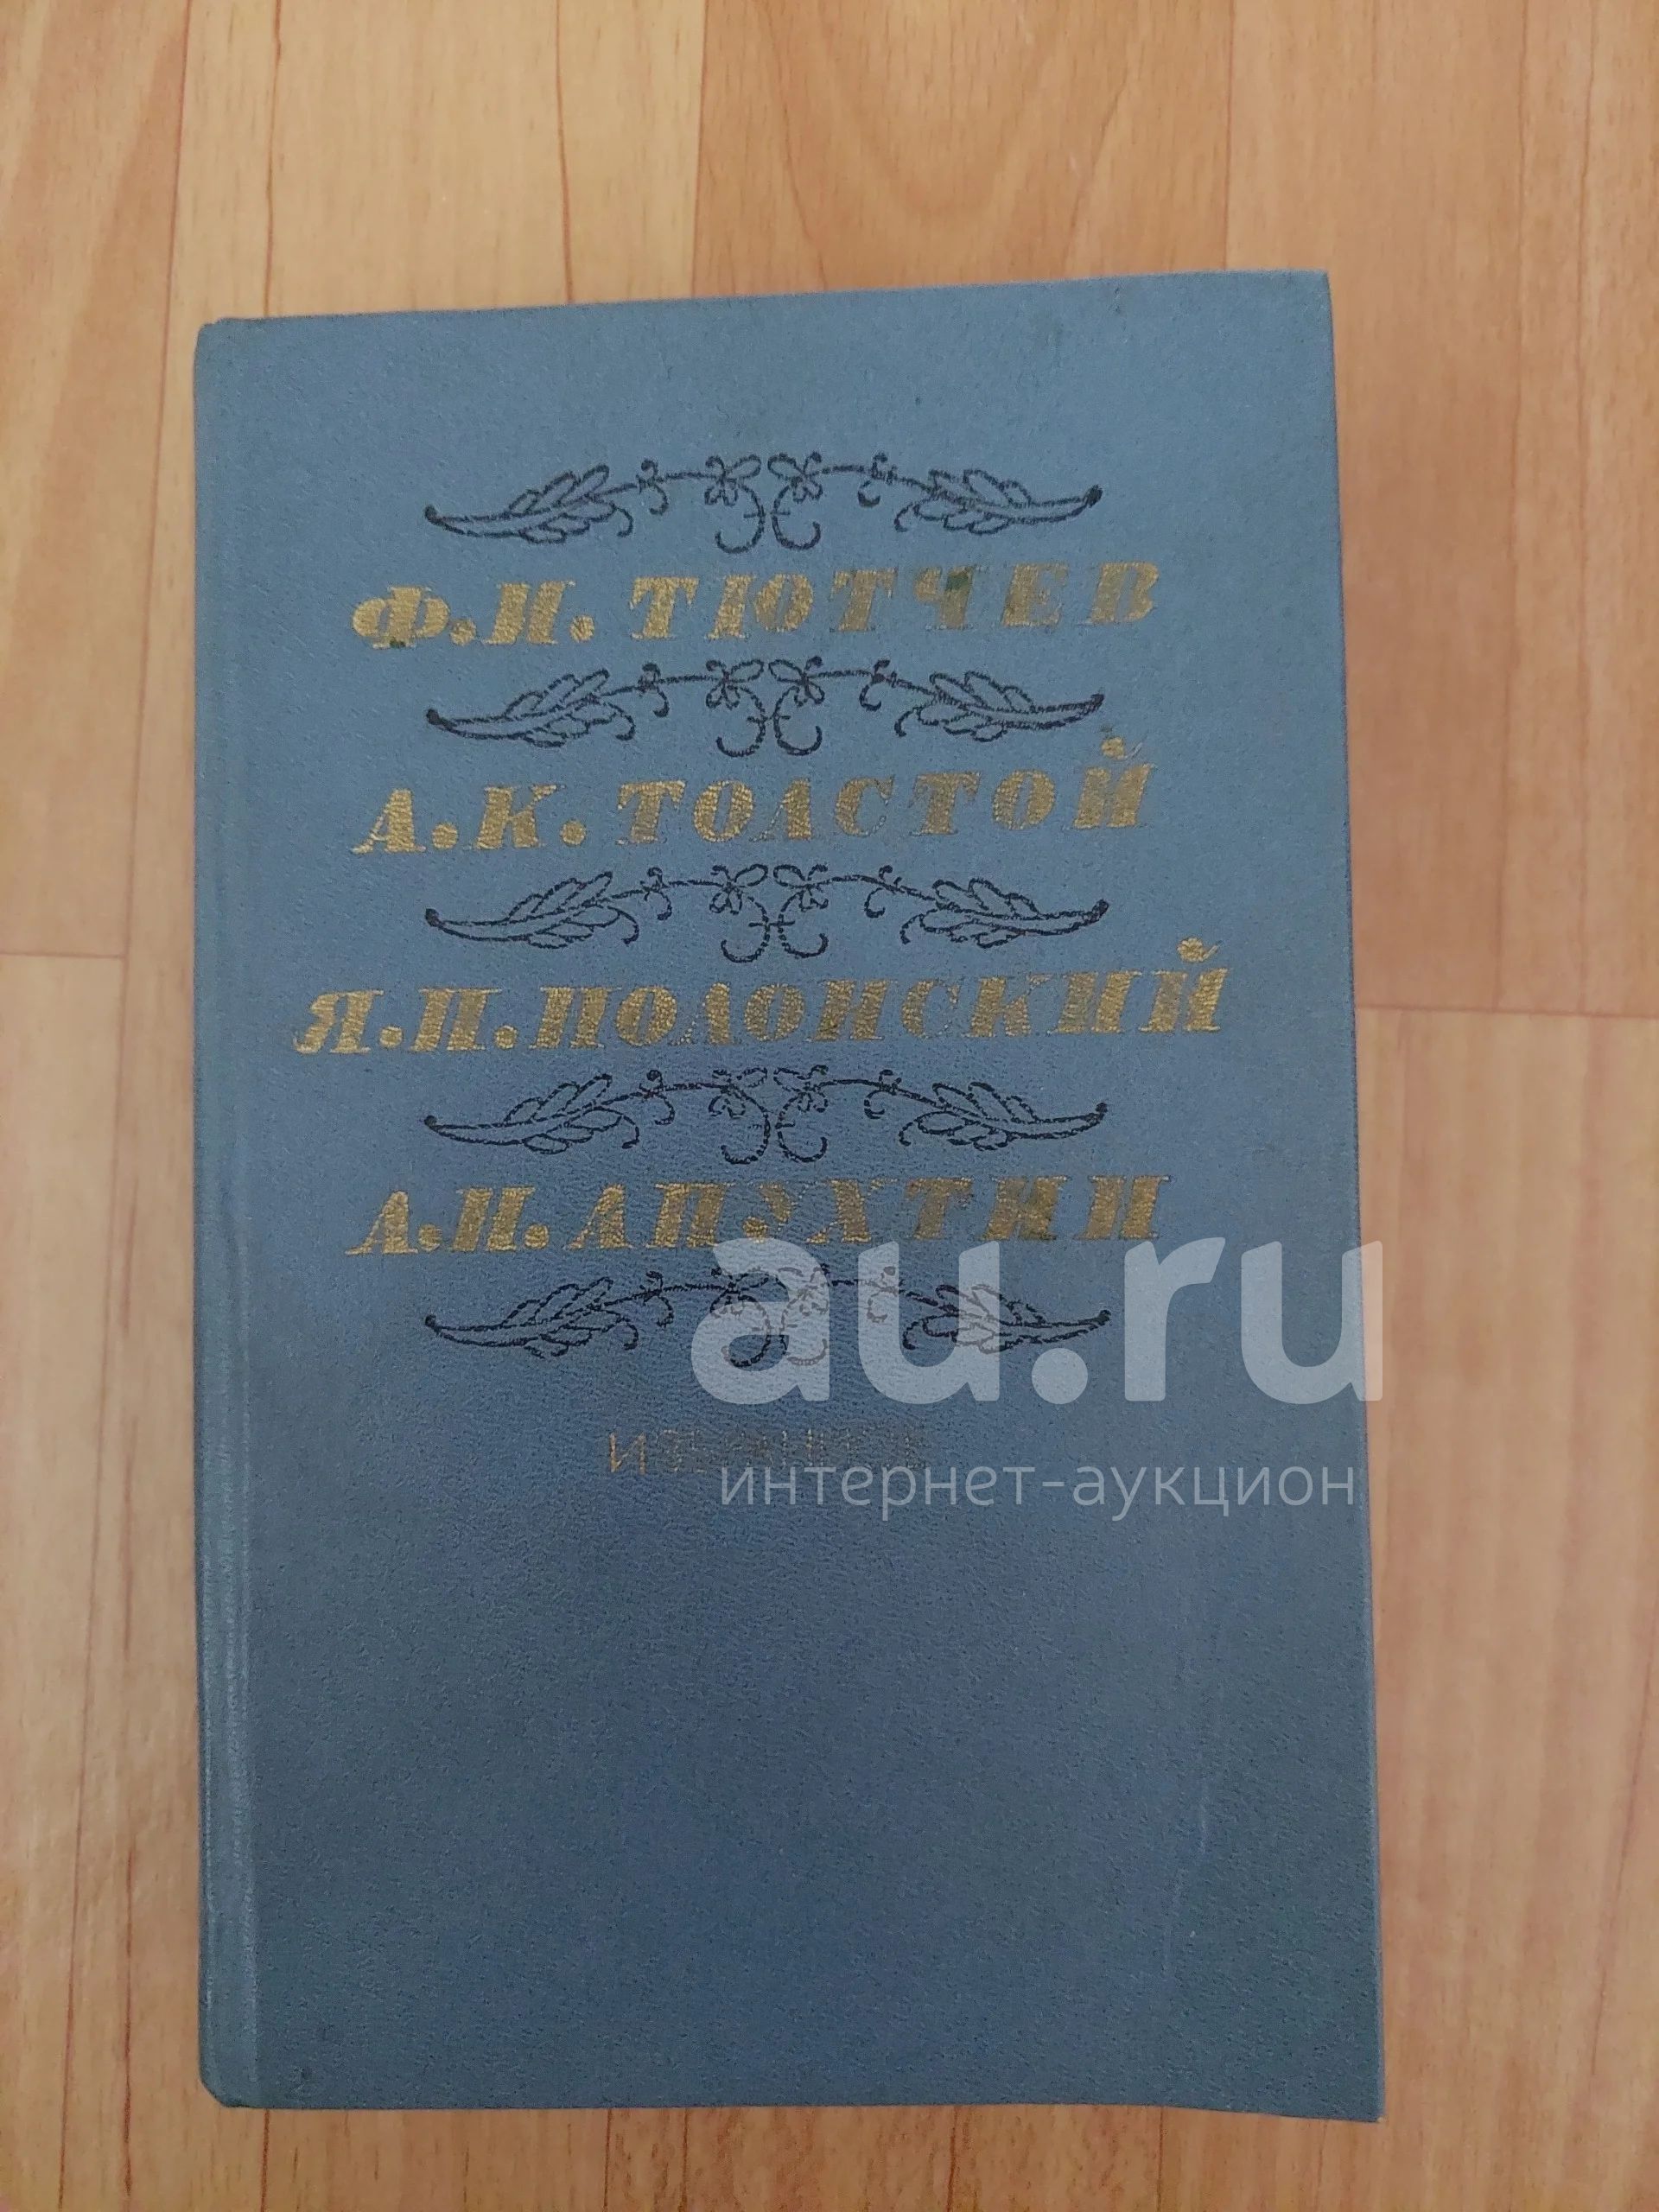 Ф.И. ТЮТЧЕВ
А.К. ТОЛСТОЙ
Я.П. ПОЛОНСКИЙ
А.Н. АПУХТИН
au.ru
ИЗБРАННОЕ
интернет-аукцион